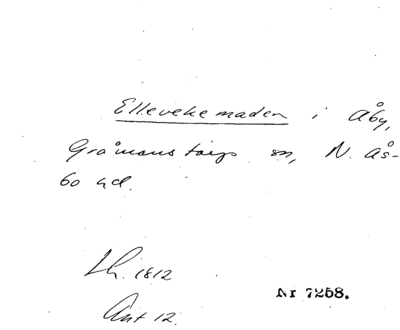 Ellevekemaden i Åby,
Gråmanstorps sn, N. Ås-
bo hd.
Lh. 1812
Ant 12.
Nr 7258.